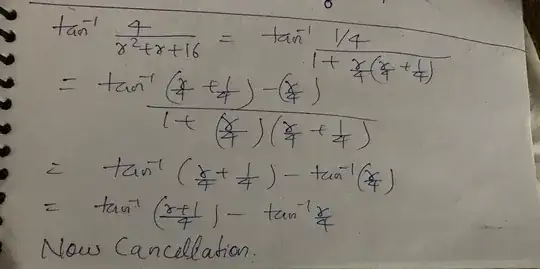 tan⁻¹ 4/(r²+r+16) = tan⁻¹ (1/4)/(1 + r/4(r/4 + 1/4))
= tan⁻¹ ((r/4 + 1/4) - (r/4))/(1 + (r/4)(r/4 + 1/4))
= tan⁻¹ (r/4 + 1/4) - tan⁻¹ (r/4)
= tan⁻¹ ((r+1)/4) - tan⁻¹ r/4
Now Cancellation.